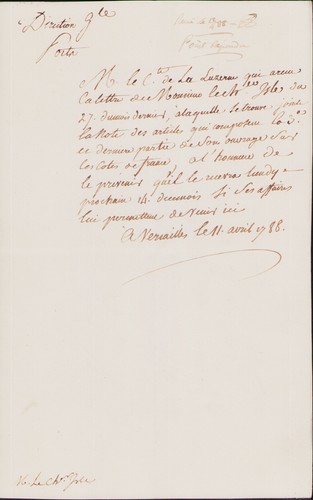 Direction gle
Ports
M. le Cte de La Luzerne qui a recu
la lettre de Monsieur le chr Isle du
27. du mois dernier, a laquelle se trouve jointe
la Note des articles qui composent la 3e
et derniere partie de son ouvrage sur
les Côtes de france, a l honneur de
le prévenir qu'il le recevra lundy
prochain 14. de ce mois si ses affaires
lui permettent de venir ici
A Versailles le 11. avril 1788.
M. Le Chr Isle